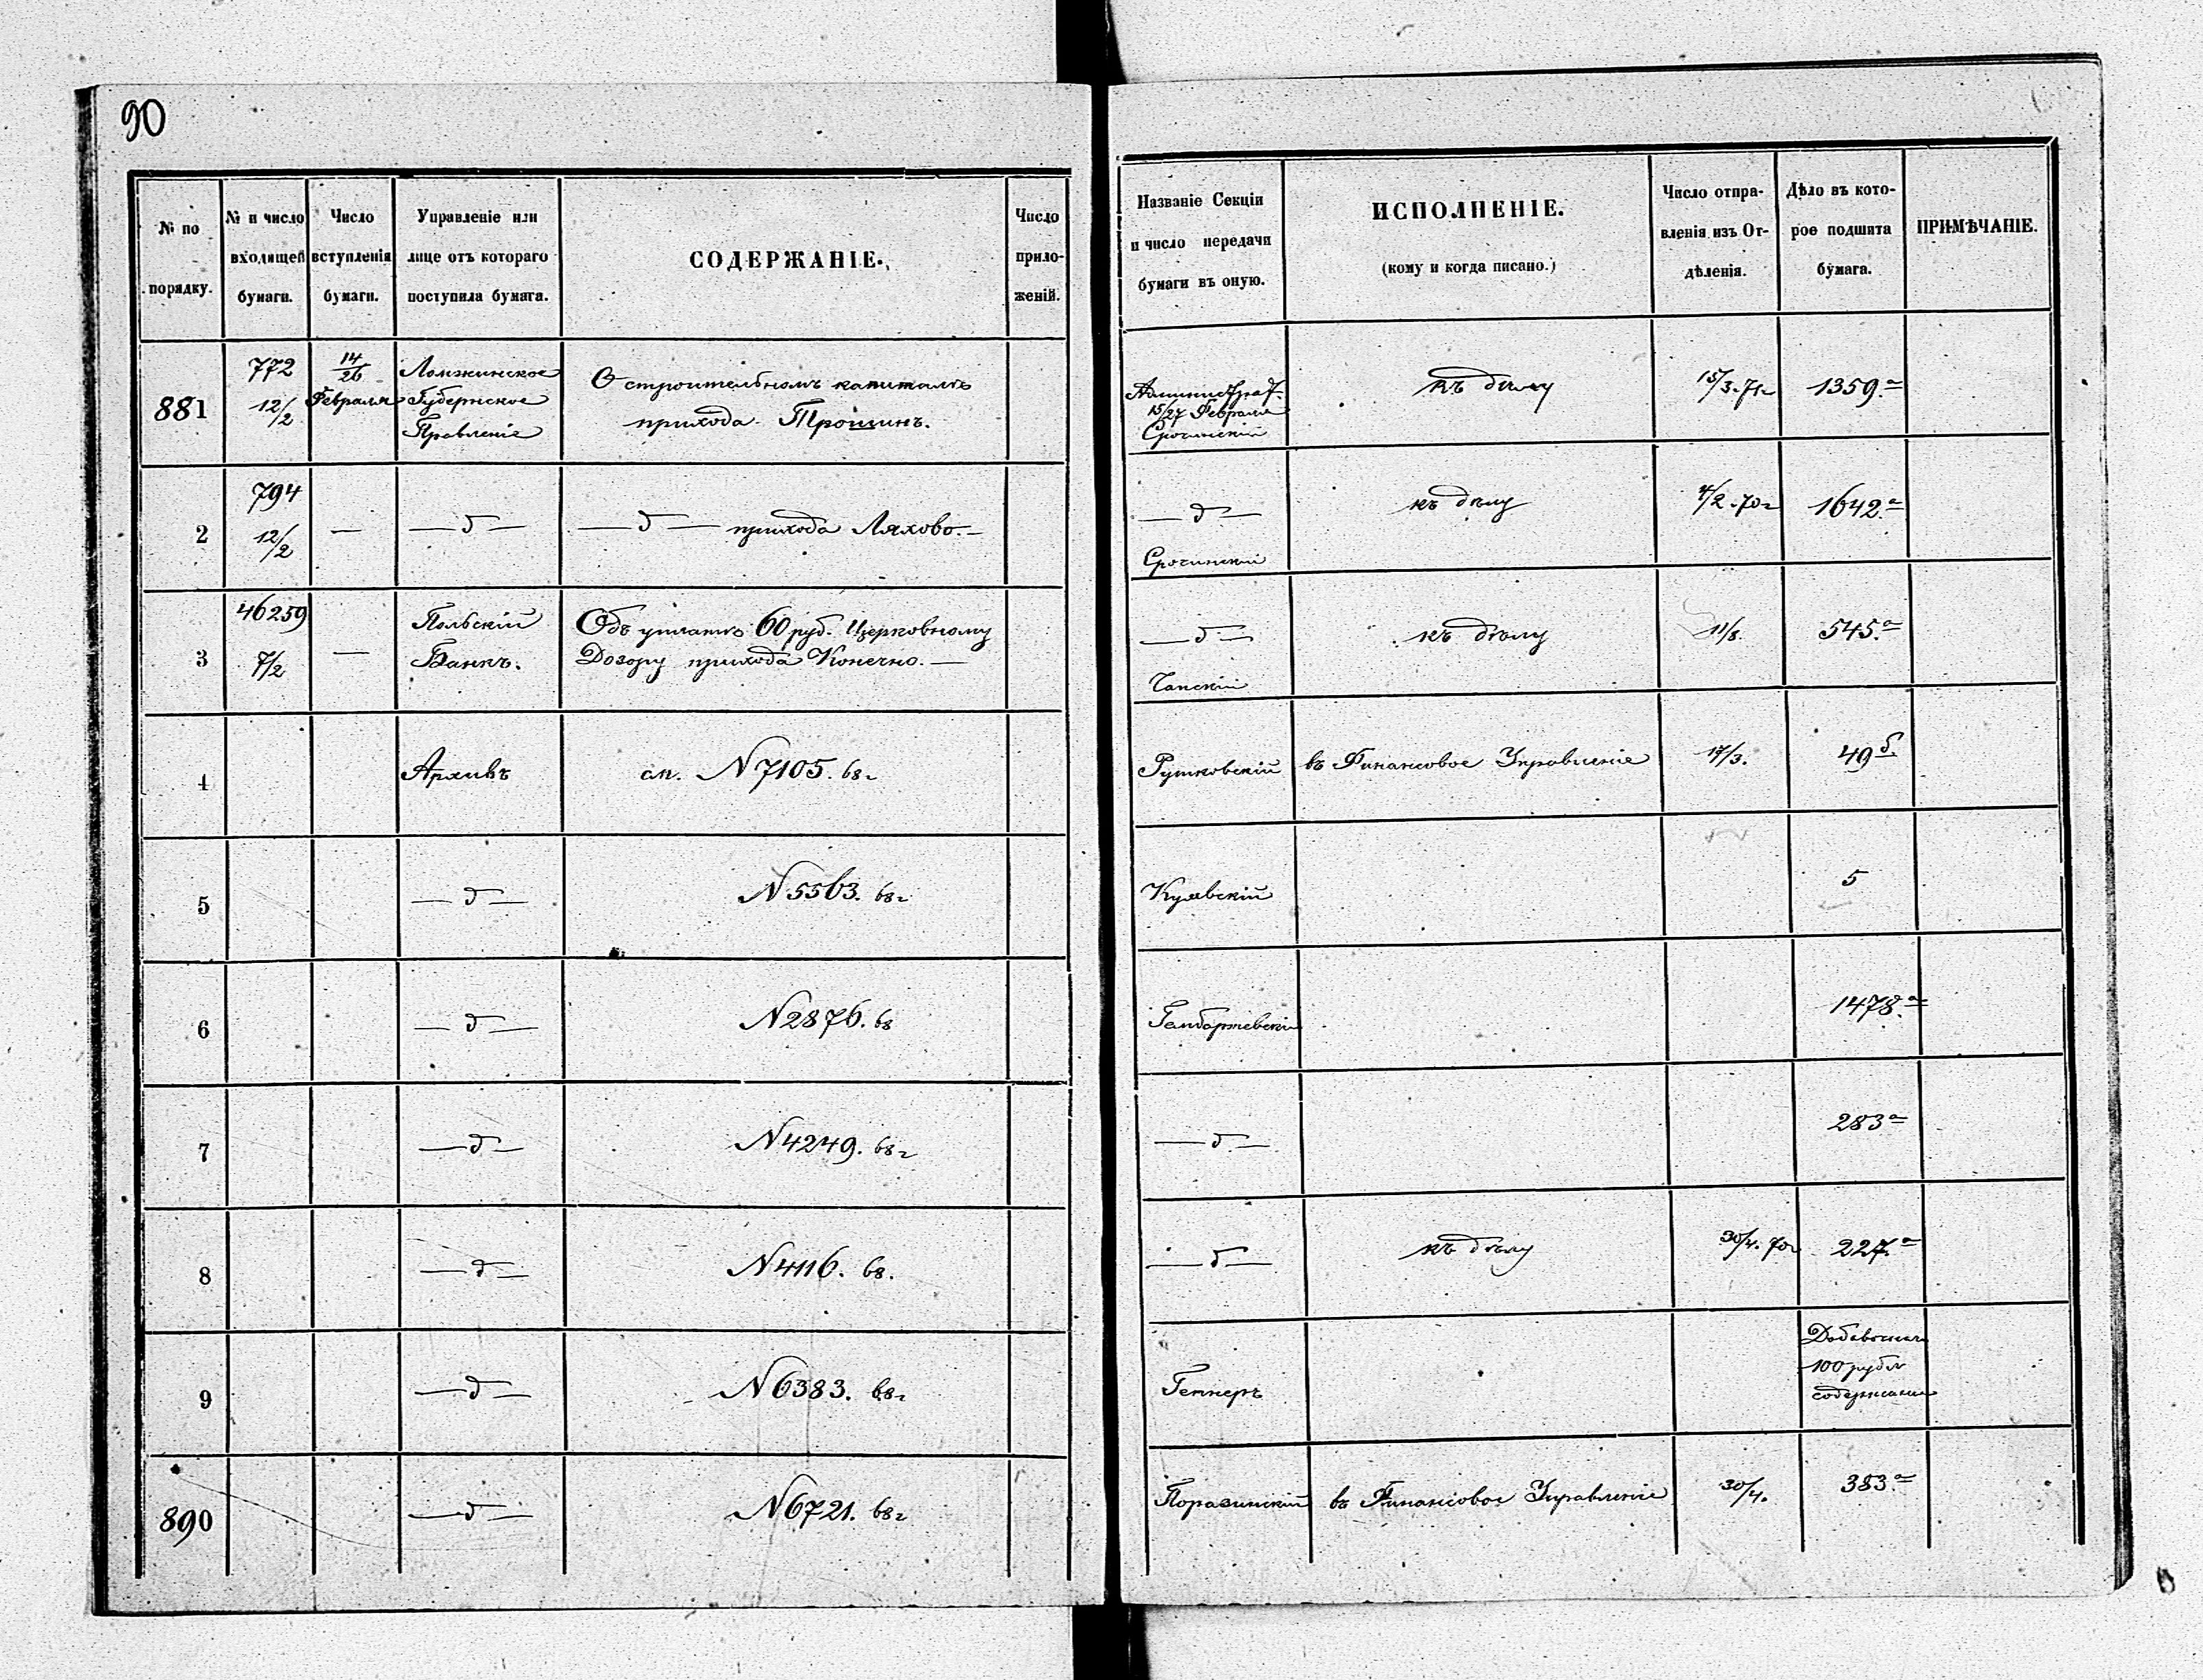 90
№ по порядку.
№ и число входящей бумаги.
Число вступленія бумаги.
Управленіе или лице отъ котораго поступила бумага.
СОДЕРЖАНІЕ.
Число приложеній.
Названіе Секціи и число передачи бумаги въ оную.
ИСПОЛНЕНІЕ.
(кому и когда писано.)
Число отправленія изъ Отдѣленія.
Дѣло въ которое подшита бумага.
ПРИМѢЧАНІЕ.
881
772
12/2
14/26
Февраля
Ломжинское
Губернское
Правленіе
О строительномъ капиталѣ
прихода Трошинъ.
15/27 Февраля
Срочинскій
къ дѣлу
15/3. 71г
1359.а
2
794
12/2
—
— д —
— д — прихода Ляхово. —
— д —
Срочинскій
къ дѣлу
4/2. 70г
1642.а
3
46259
7/2
—
Польскій
Банкъ.
Объ уплатѣ 60 руб. Церковному
Дозору прихода Конечно. —
— д —
Чапскій
къ дѣлу
11/8.
545.а
4
Архивъ
см. N 7105. 68г
Рутковскій
въ Финансовое Управленіе
17/3.
49 б.
5
— д —
N 5563. 68г
Куявскій
5
6
— д —
N 2876. 68
1478.а
7
— д —
N 4249. 68г
— д —
283а
8
— д —
N 4116. 68.
— д —
къ дѣлу
30/4. 70г
227.а
9
— д —
N 6383. 68г
100 рубл
содержанія
890
— д —
N 6721. 68г
Поразинскій
въ Финансовое Управленіе
30/4.
383.а